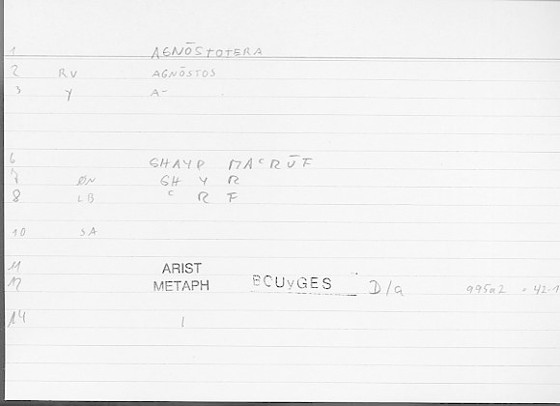 1 AGNŌSTOTERA
2 RV AGNŌSTOS
3 Y A-
6 GHAYR MAᶜRŪF
7 ØN GH Y R
8 LB ᶜ R F
10 SA
11 ARIST
12 METAPH BOUyGES D/a 995a2 • 42-1
14 1